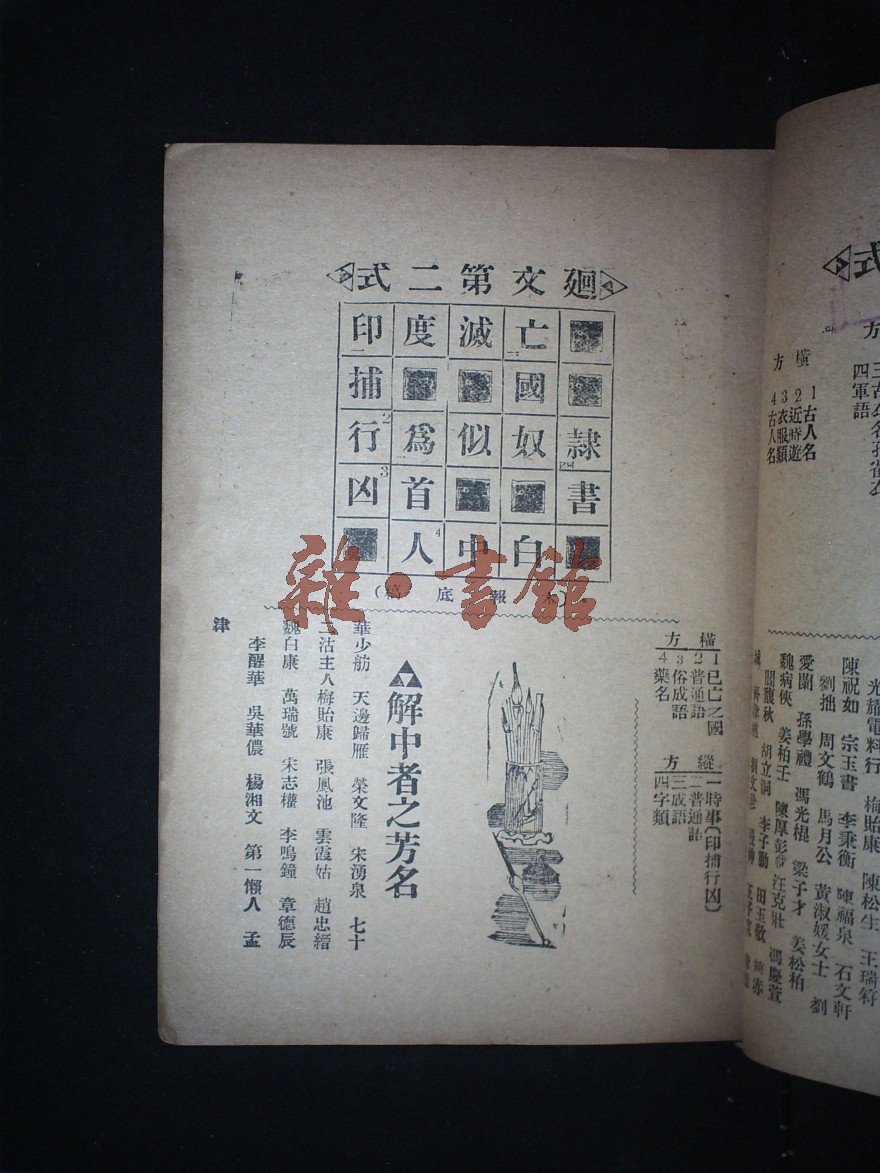 廻文第二式
印 度 滅 亡
捕 國
行 爲 似 奴 隸
凶 首 書
人 中 白
雜·書館
報 底 稿)
橫方
1已亡之國
2普通語
3俗成語
4藥名
縱方
一時事(印捕行凶)
二普通語
三成語
四字類
解中者之芳名
華少舫 天邊歸雁 榮文隆 宋湧泉 七十
二沽主人 梅貽康 張鳳池 雲霞姑 趙忠縉
魏白康 萬瑞號 宋志權 李鳴鐘 章德辰
李醒華 吳華儂 楊湘文 第一懶人 孟
津
式
方
四軍語
橫方
1古人名
2近時遊
3衣服類
4古人名
光耀電料行 梅貽康 陳松生 王瑞符
陳祝如 宗玉書 李秉衡 陳福泉 石文軒
劉拙 周文鶴 馬月公 黃淑媛女士 劉
愛閣 孫學禮 馮光棍 梁子才 姜松柏
魏病俠 姜柏壬 陳厚彭 汪克壯 馮慶萱
閻馥秋 胡立洞 李子勳 田玉敬